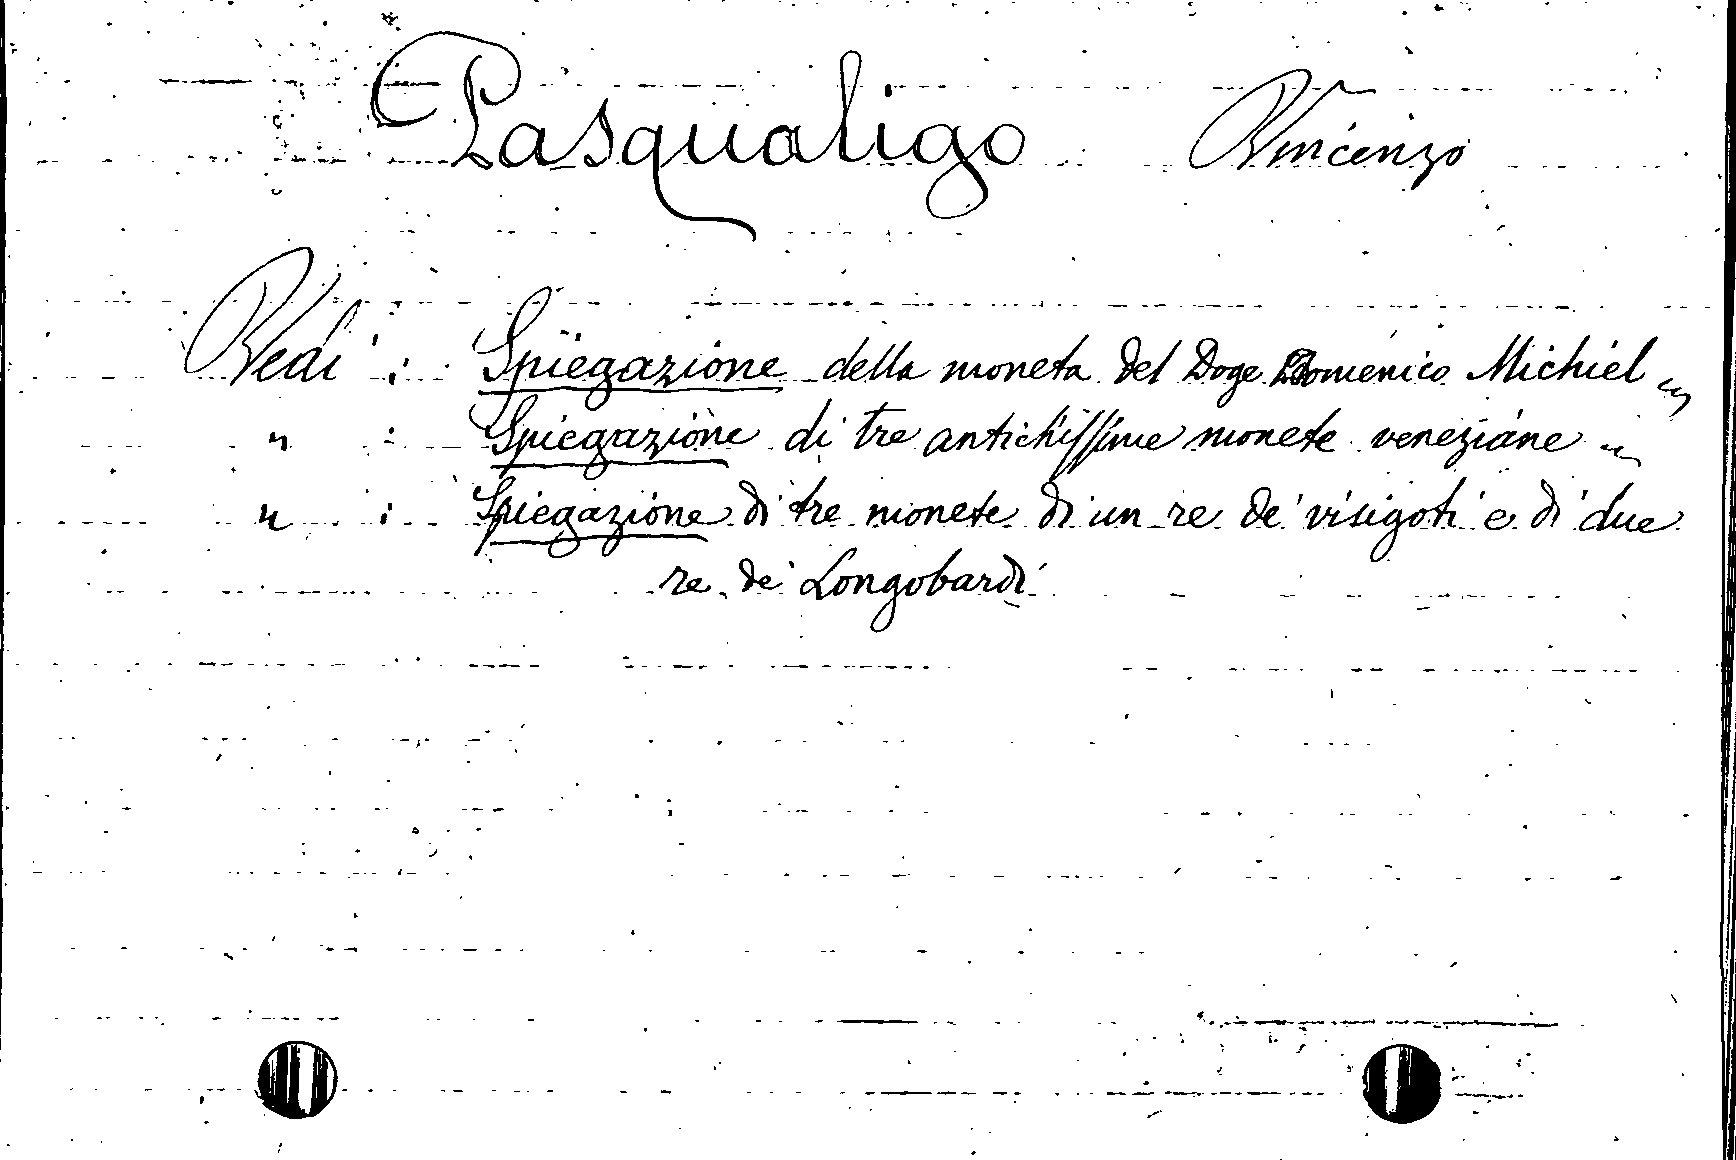 Pasqualigo Vincenzo
Vedi : Spiegazione della moneta del Doge Domenico Michiel "
" : Spiegazione di tre antichissime monete veneziane "
" : Spiegazione di tre monete di un re de' visigoti e di due
re de' Longobardi